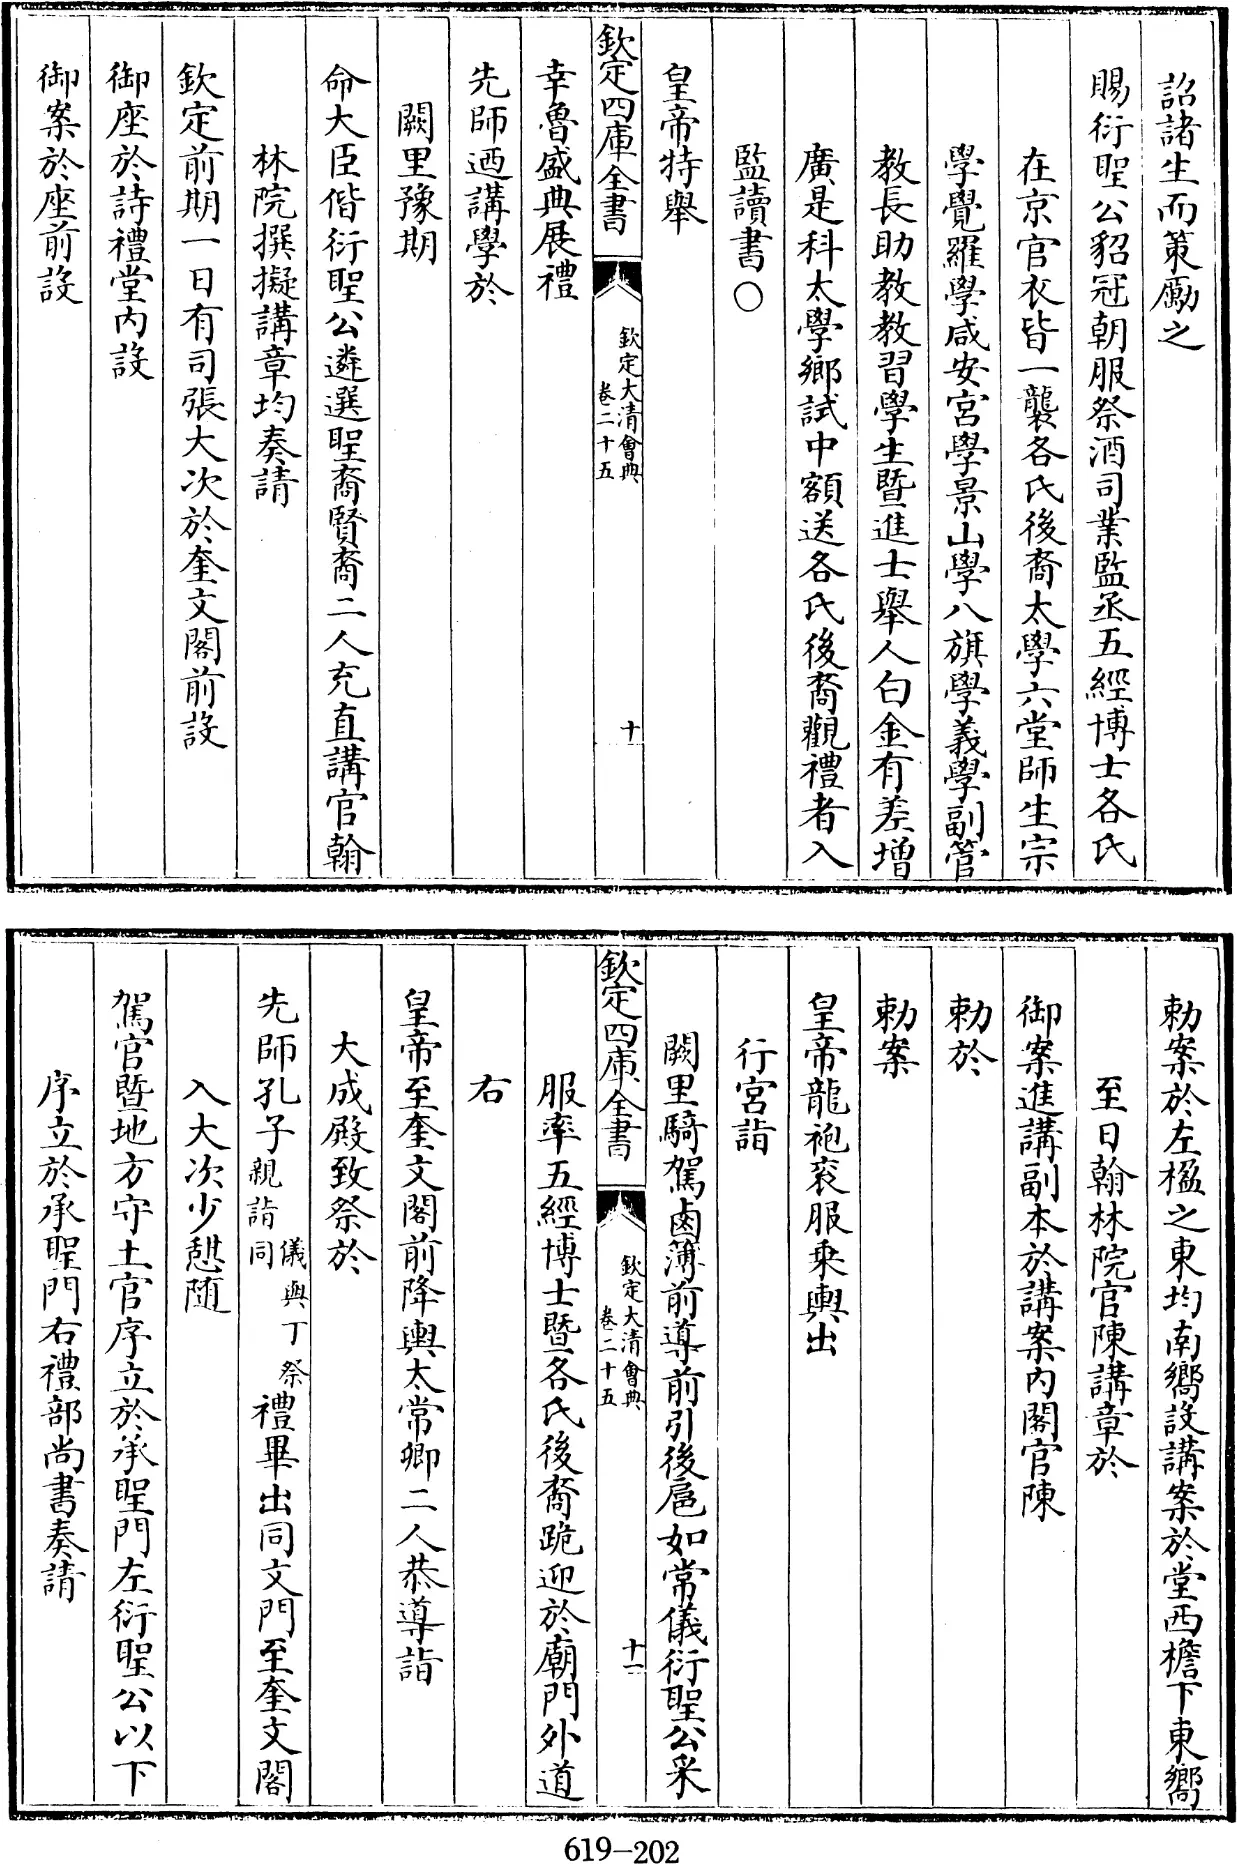 詔諸生而策勵之
賜衍聖公貂冠朝服祭酒司業監丞五經博士各氏
在京官衣皆一襲各氏後裔太學六堂師生宗
學覺羅學咸安宮學景山學八旗學義學副管
教長助教教習學生暨進士舉人白金有差增
廣是科太學鄉試中額送各氏後裔觀禮者入
監讀書〇
皇帝特舉
欽定四庫全書
欽定大清會典
卷二十五
十
幸魯盛典展禮
先師迺講學於
闕里豫期
命大臣偕衍聖公遴選聖裔賢裔二人充直講官翰
林院撰擬講章均奏請
欽定前期一日有司張大次於奎文閣前設
御座於詩禮堂內設
御案於座前設
勅案於左楹之東均南嚮設講案於堂西檐下東嚮
至日翰林院官陳講章於
御案進講副本於講案內閣官陳
勅於
勅案
皇帝龍袍衮服乘輿出
行宮詣
闕里騎駕鹵簿前導前引後扈如常儀衍聖公釆
欽定四庫全書
欽定大清會典
卷二十五
十一
服率五經博士暨各氏後裔跪迎於廟門外道
右
皇帝至奎文閣前降輿太常卿二人恭導詣
大成殿致祭於
先師孔子親詣儀與丁祭同禮畢出同文門至奎文閣
入大次少憩隨
駕官暨地方守土官序立於承聖門左衍聖公以下
序立於承聖門右禮部尚書奏請
619-202